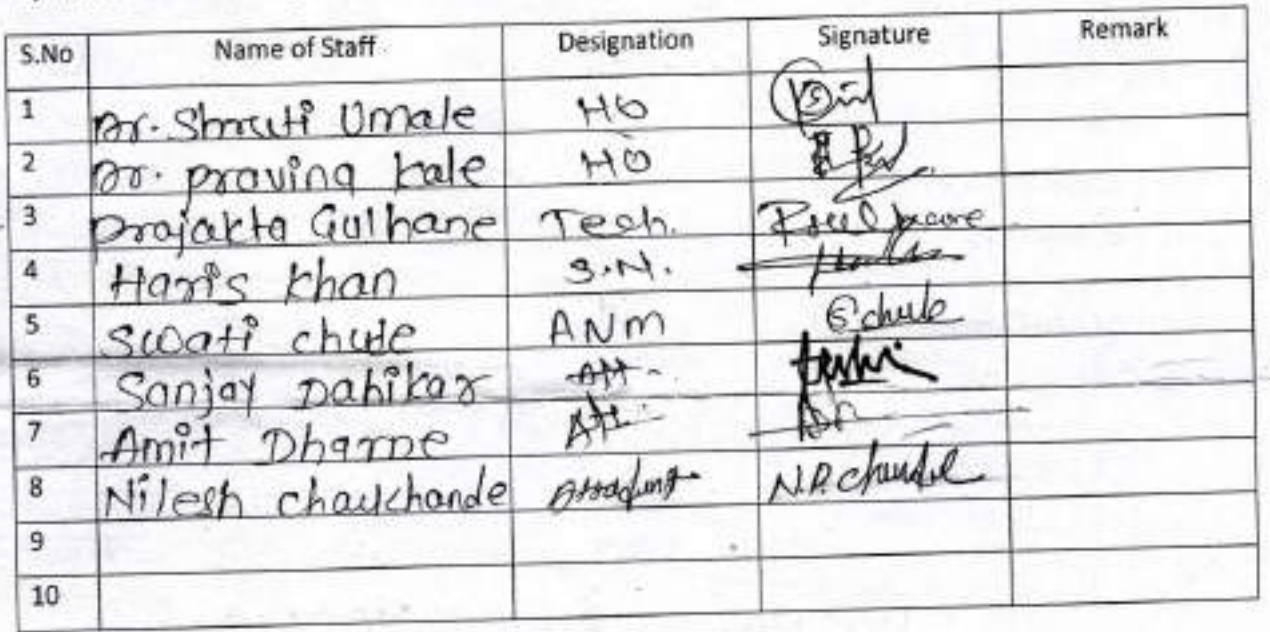 S.No Name of Staff Designation Signature Remark
1 Dr. Shruti Umale HO
2 Dr. pravina kale HO
3 Prajakta Gulhane Tech.
4 Haris khan S.N.
5 Swati chute ANM
6 Sanjay Dahikar Att.
7 Amit Dharne Att.
8 Nilesh
9
10